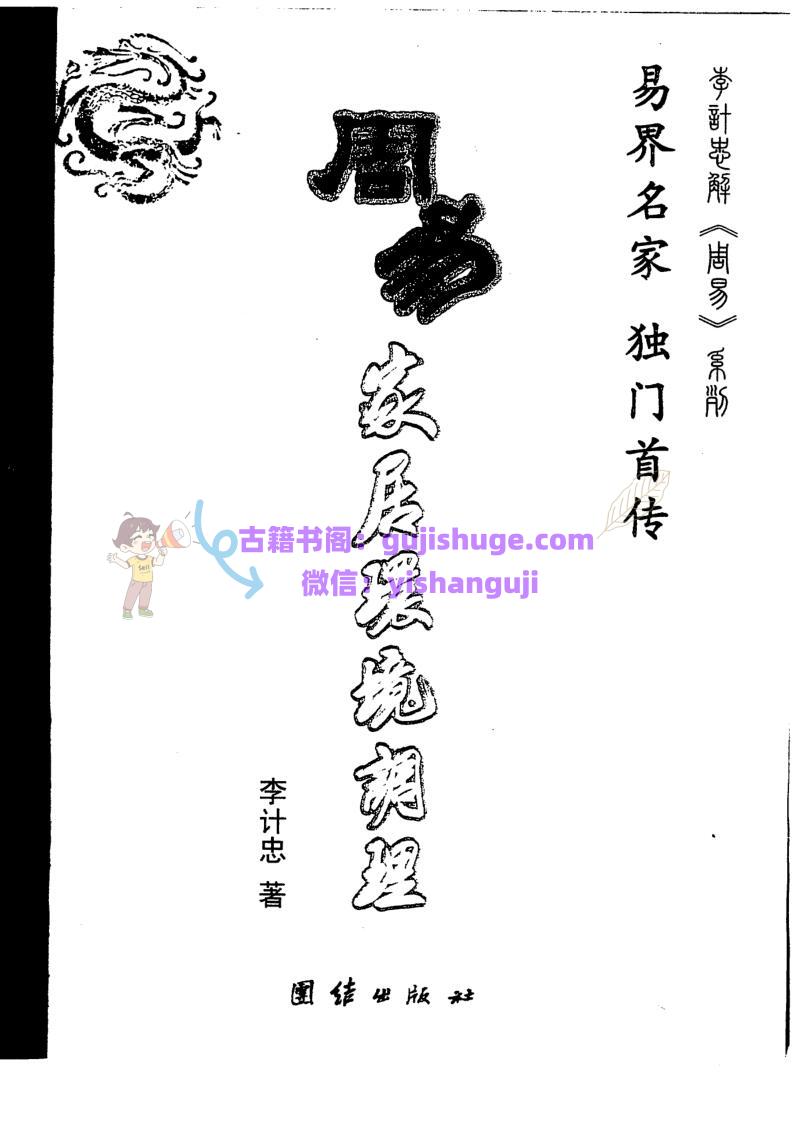 李計忠解《周易》系列
易界名家 独门首传
周易
家居環境調理
李计忠 著
團结出版社
古籍书阁：gujishuge.com
微信：yishanguji
Sell